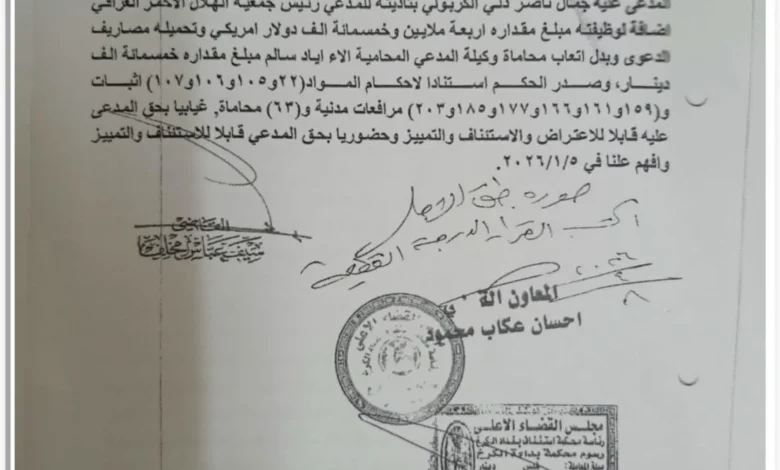 المدعى عليه جمال ناصر دلي الكربولي بتاديته للمدعي رئيس جمعية الهلال الاحمر العراقي
اضافة لوظيفته مبلغ مقداره اربعة ملايين وخمسمائة الف دولار امريكي وتحميله مصاريف
الدعوى وبدل اتعاب محاماة وكيلة المدعي المحامية الاء اياد سالم مبلغ مقداره خمسمائة الف
دينار، وصدر الحكم استنادا لاحكام المواد(٢٢و١٠٥و١٠٦و١٠٧) اثبات
و(١٥٩و١٦١و١٦٦و١٧٧و١٨٥و٢٠٣) مرافعات مدنية و(٦٣) محاماة، غيابيا بحق المدعى
عليه قابلا للاعتراض والاستئناف والتمييز وحضوريا بحق المدعي قابلا للاستئناف والتمييز
وافهم علنا في ٢٠٢٦/١/٥.
صورة طبق الاصل
اكتسب القرار الدرجة القطعية
القاضي
سيف عباس مخلف
٢٠٢٦
٤
٨
المعاون
احسان عكاب محمود
القضاء الاعلى
مجلس القضاء الاعلى
رئاسة محكمة استئناف بغداد الكرخ
رسوم محكمة بداءة الكرخ
فلس دينار